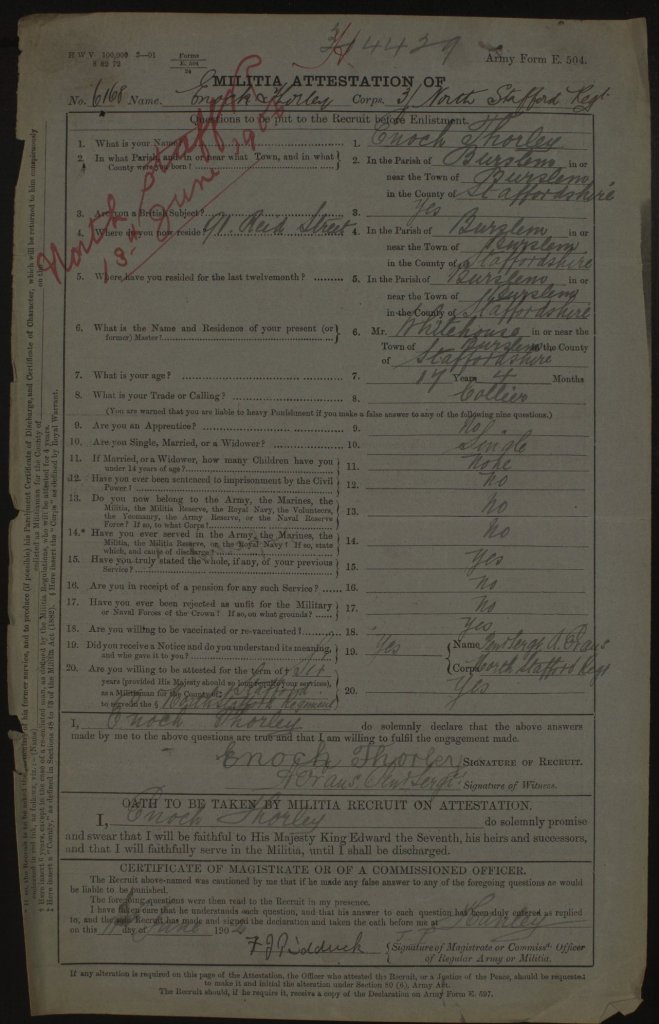 3/14429
H W V 100,000 2—01
8 62 72
Forms
E. 504
24
Army Form E. 504.
MILITIA ATTESTATION OF
No. 6168 Name. Enoch Thorley Corps. 3/ North Stafford Regt
Questions to be put to the Recruit before Enlistment.
North Stafford
13th June
1. What is your Name? 1. Enoch Thorley
2. In what Parish and in or near what Town, and in what County were you born? 2. In the Parish of Burslem in or
near the Town of Burslem
in the County of Staffordshire
3. Are you a British Subject? 3. Yes
4. Where do you now reside? Reid Street 4. In the Parish of Burslem in or
near the Town of Burslem
in the County of Staffordshire
5. Where have you resided for the last twelvemonth? 5. In the Parish of Burslem in or
near the Town of Burslem
in the County of Staffordshire
6. What is the Name and Residence of your present (or former) Master? 6. Mr. Whitehouse in or near the
Town of Burslem in the County
of Staffordshire
7. What is your age? 7. 17 Years 4 Months
8. What is your Trade or Calling? 8. Collier
(You are warned that you are liable to heavy Punishment if you make a false answer to any of the following nine questions.)
9. Are you an Apprentice? 9. No
10. Are you Single, Married, or a Widower? 10. Single
11. If Married, or a Widower, how many Children have you under 14 years of age? 11. None
12. Have you ever been sentenced to imprisonment by the Civil Power? 12. No
13. Do you now belong to the Army, the Marines, the Militia, the Militia Reserve, the Royal Navy, the Volunteers, the Yeomanry, the Army Reserve, or the Naval Reserve Force? If so, to what Corps? 13. No
14.* Have you ever served in the Army, the Marines, the Militia, the Militia Reserve, or the Royal Navy? If so, state which, and cause of discharge? 14. No
15. Have you truly stated the whole, if any, of your previous Service? 15. Yes
16. Are you in receipt of a pension for any such Service? 16. No
17. Have you ever been rejected as unfit for the Military or Naval Forces of the Crown? If so, on what grounds? 17. No
18. Are you willing to be vaccinated or re-vaccinated? 18. Yes
19. Did you receive a Notice and do you understand its meaning, and who gave it to you? 19. Yes Name A. Evans
Corps North Stafford Regt
20. Are you willing to be attested for the term of † Six years (provided His Majesty should so long require your services), as a Militiaman for the County of ‡ Stafford to serve in the § North Stafford Regiment 20. Yes
I, Enoch Thorley do solemnly declare that the above answers
made by me to the above questions are true and that I am willing to fulfil the engagement made.
Enoch Thorley SIGNATURE OF RECRUIT.
Evans Signature of Witness.
OATH TO BE TAKEN BY MILITIA RECRUIT ON ATTESTATION.
I, Enoch Thorley do solemnly promise
and swear that I will be faithful to His Majesty King Edward the Seventh, his heirs and successors,
and that I will faithfully serve in the Militia, until I shall be discharged.
CERTIFICATE OF MAGISTRATE OR OF A COMMISSIONED OFFICER.
The Recruit above-named was cautioned by me that if he made any false answer to any of the foregoing questions he would
be liable to be punished.
The foregoing questions were then read to the Recruit in my presence.
I have taken care that he understands each question, and that his answer to each question has been duly entered as replied
to, and the said Recruit has made and signed the declaration and taken the oath before me at Hanley
on this day of June 190
F J Pidduck Signature of Magistrate or Commissd. Officer
of Regular Army or Militia.
If any alteration is required on this page of the Attestation, the Officer who attested the Recruit, or a Justice of the Peace, should be requested
to make it and initial the alteration under Section 80 (6), Army Act.
The Recruit should, if he require it, receive a copy of the Declaration on Army Form E. 597.